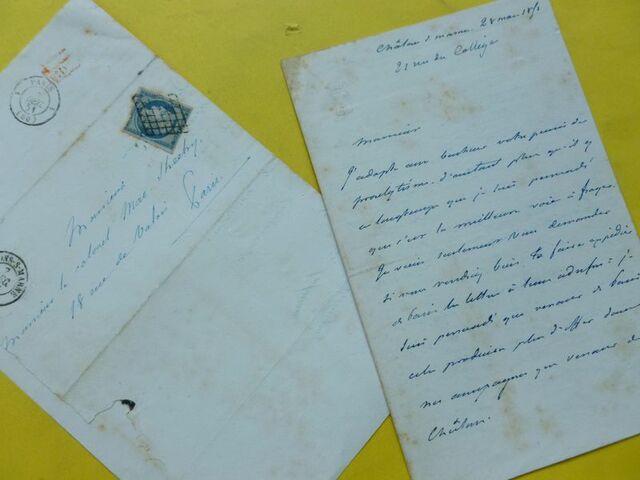 PARIS
S-MARNE
Monsieur
Monsieur le colonel Mac Sheehy
18 rue de Valois Paris
Châlons s marne. 28 mai 1851
21 rue du Collège
Monsieur
J'adopte avec bonheur votre pensée de
prosélytisme. d'autant plus qu'il y
a longtemps que je suis persuadé
que c'est la meilleure voie à frayer.
Je viens seulement vous demander
si vous voudriez bien la faire expédier
de Paris la lettre à leur adresse : je
suis persuadé que venant de Paris
cela produira plus d'effet dans
nos campagnes que venant de
Châlons.